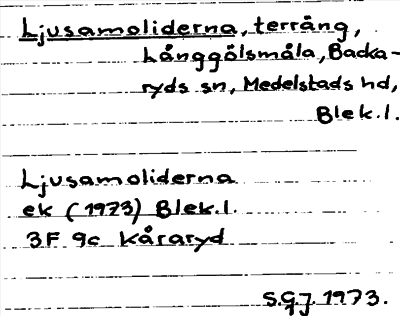 Ljusamoliderna, terräng,
Långgölsmåla, Backa-
ryds sn, Medelstads hd,
Blek.l.
Ljusamoliderna
ek (1973) Blek.l.
3F 9c Kåraryd
S.G.J. 1973.